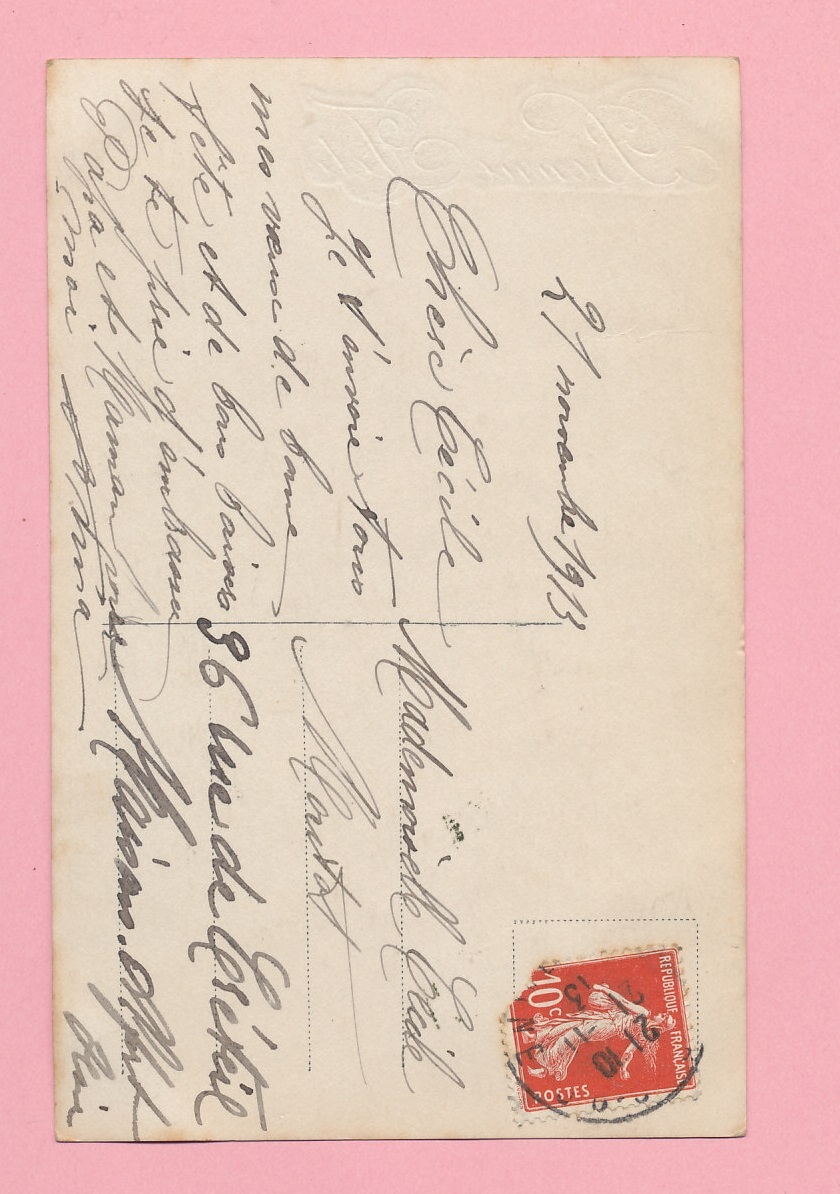 Bonne Fête
21 novembre 1913
Chère Cécile
Je t'envoie tous
mes vœux de bonne
fête et de bons baisers
Je te prie d'embrasser
Papa et Maman pour
moi.
Mademoiselle Cécile
36 rue de Créteil
Maisons-Alfort
REPUBLIQUE FRANÇAISE
10c
POSTES
21 10
21 - 11
13